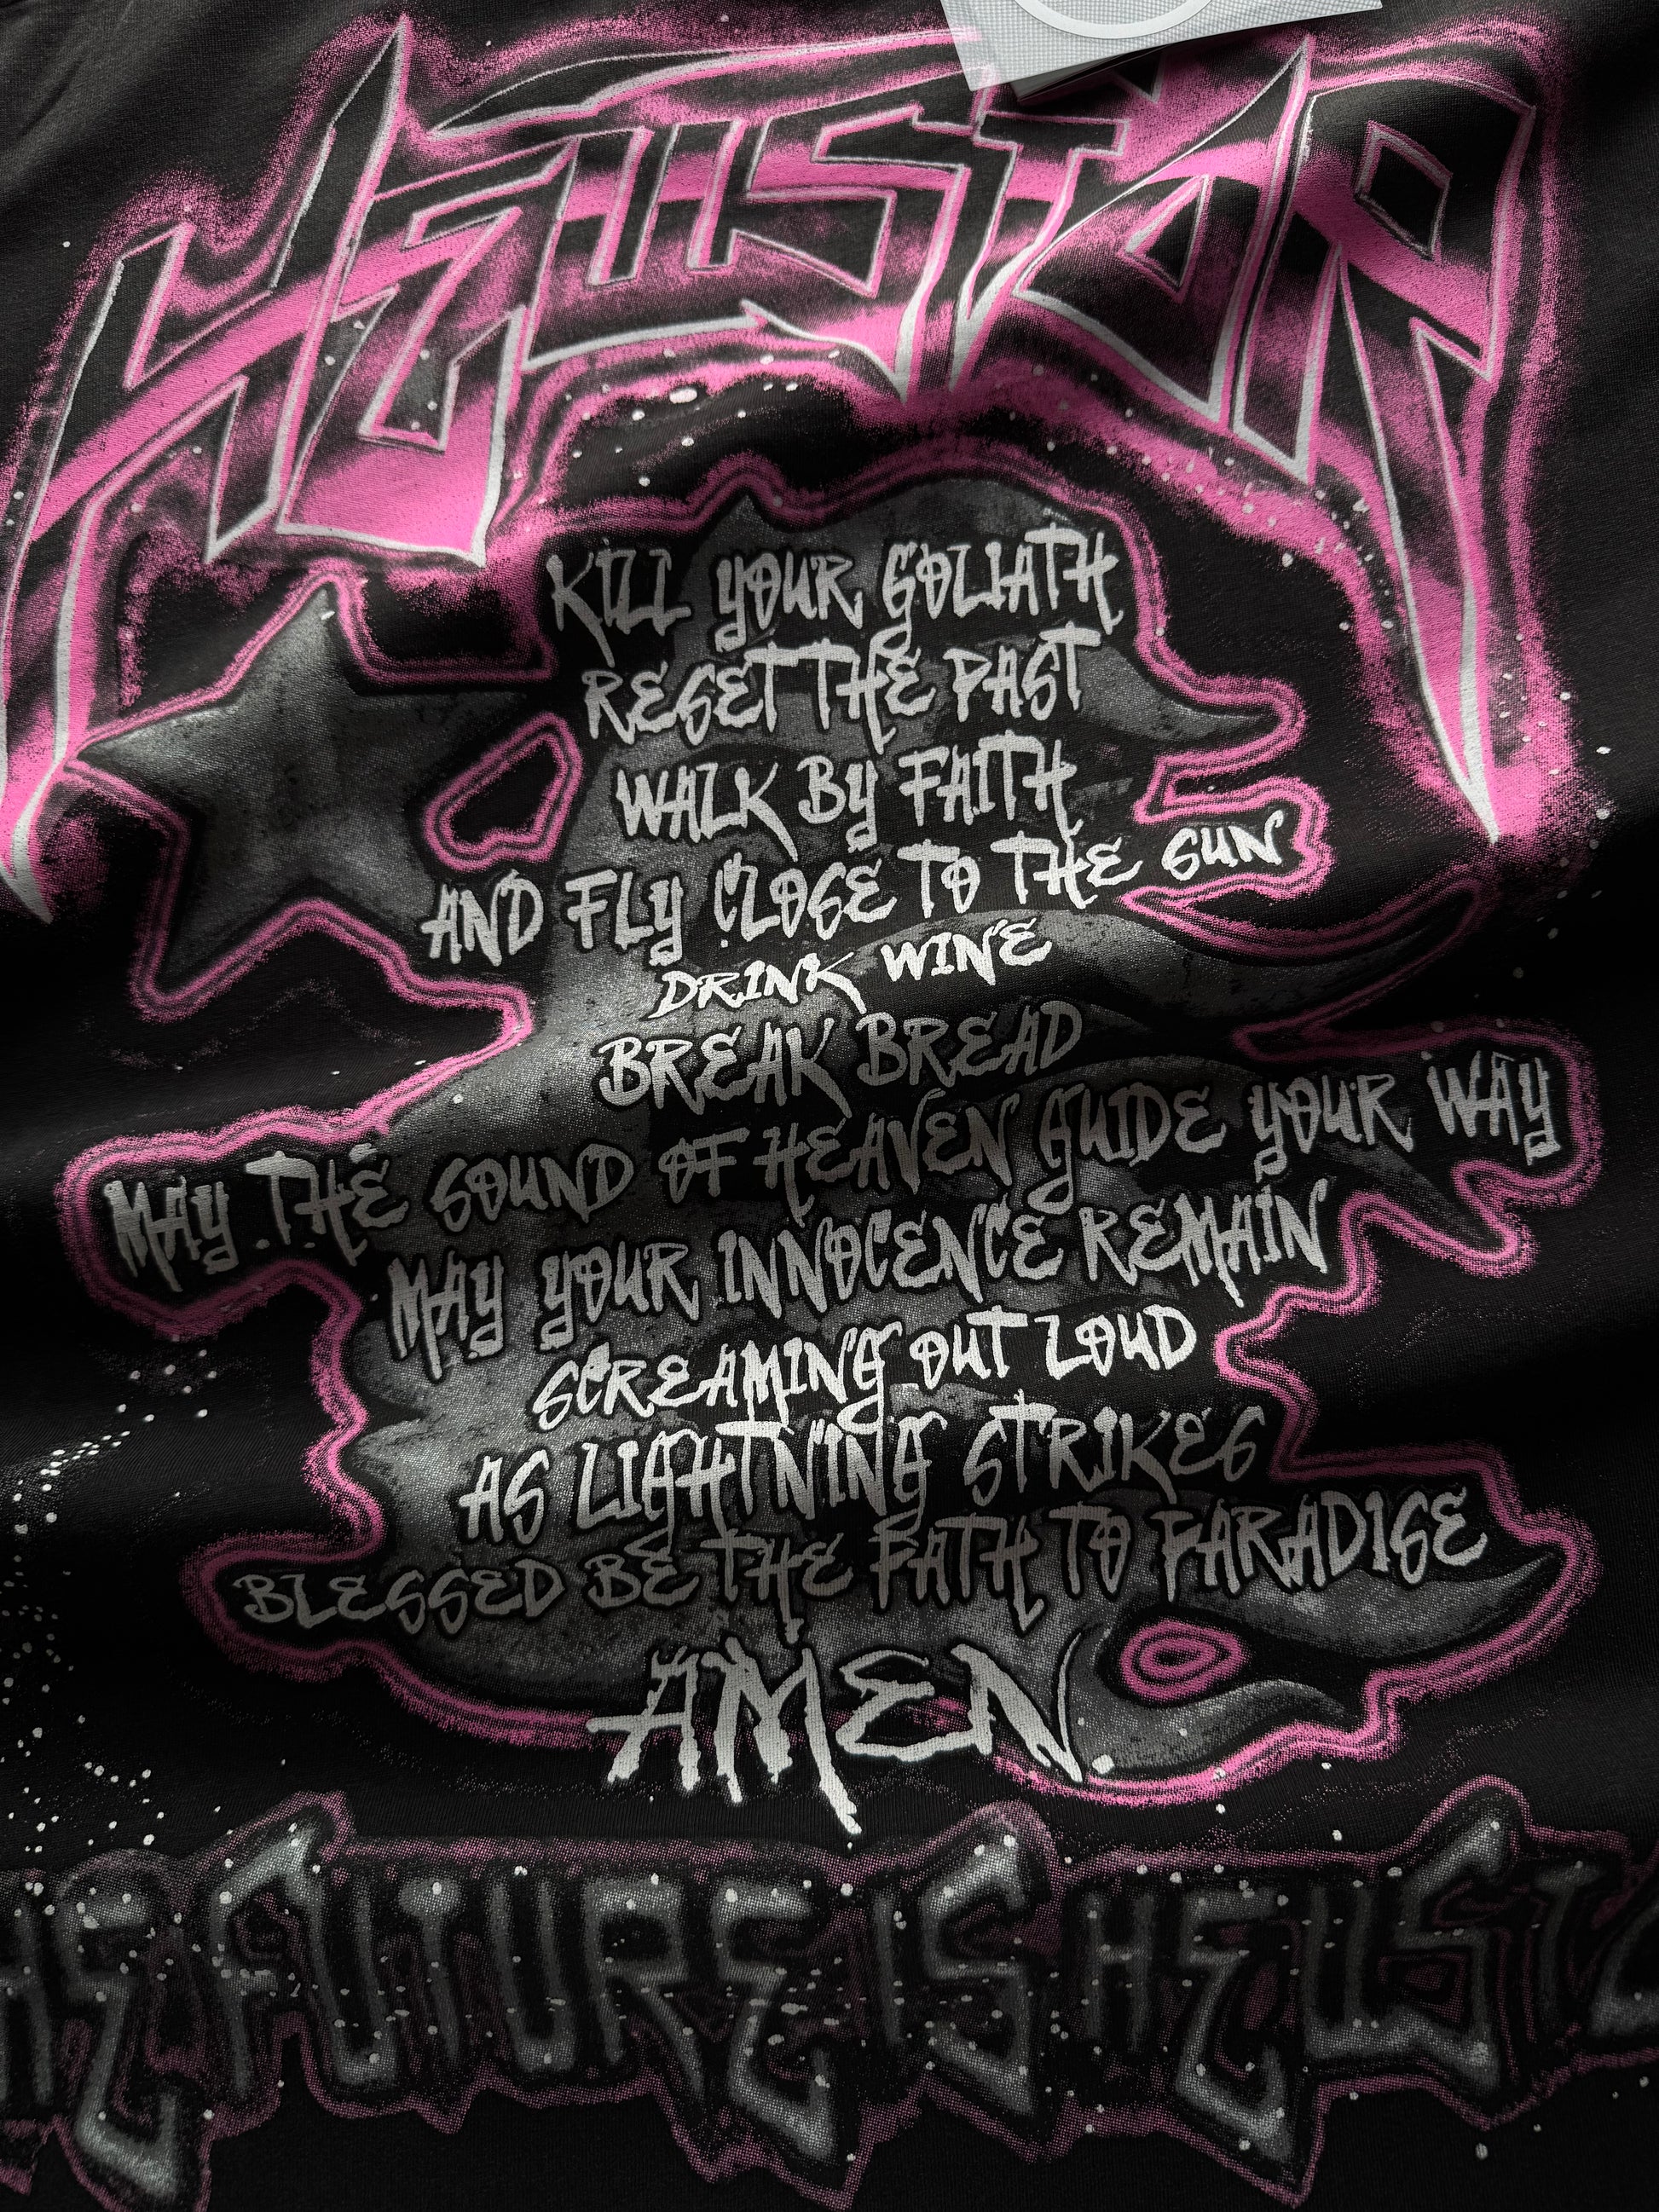 HELLSTAR
KILL YOUR GOLIATH
RESET THE PAST
WALK BY FAITH
AND FLY CLOSE TO THE SUN
DRINK WINE
BREAK BREAD
MAY THE SOUND OF HEAVEN GUIDE YOUR WAY
MAY YOUR INNOCENCE REMAIN
SCREAMING OUT LOUD
AS LIGHTNING STRIKES
BLESSED BE THE PATH TO PARADISE
AMEN
HE FUTURE IS HELST